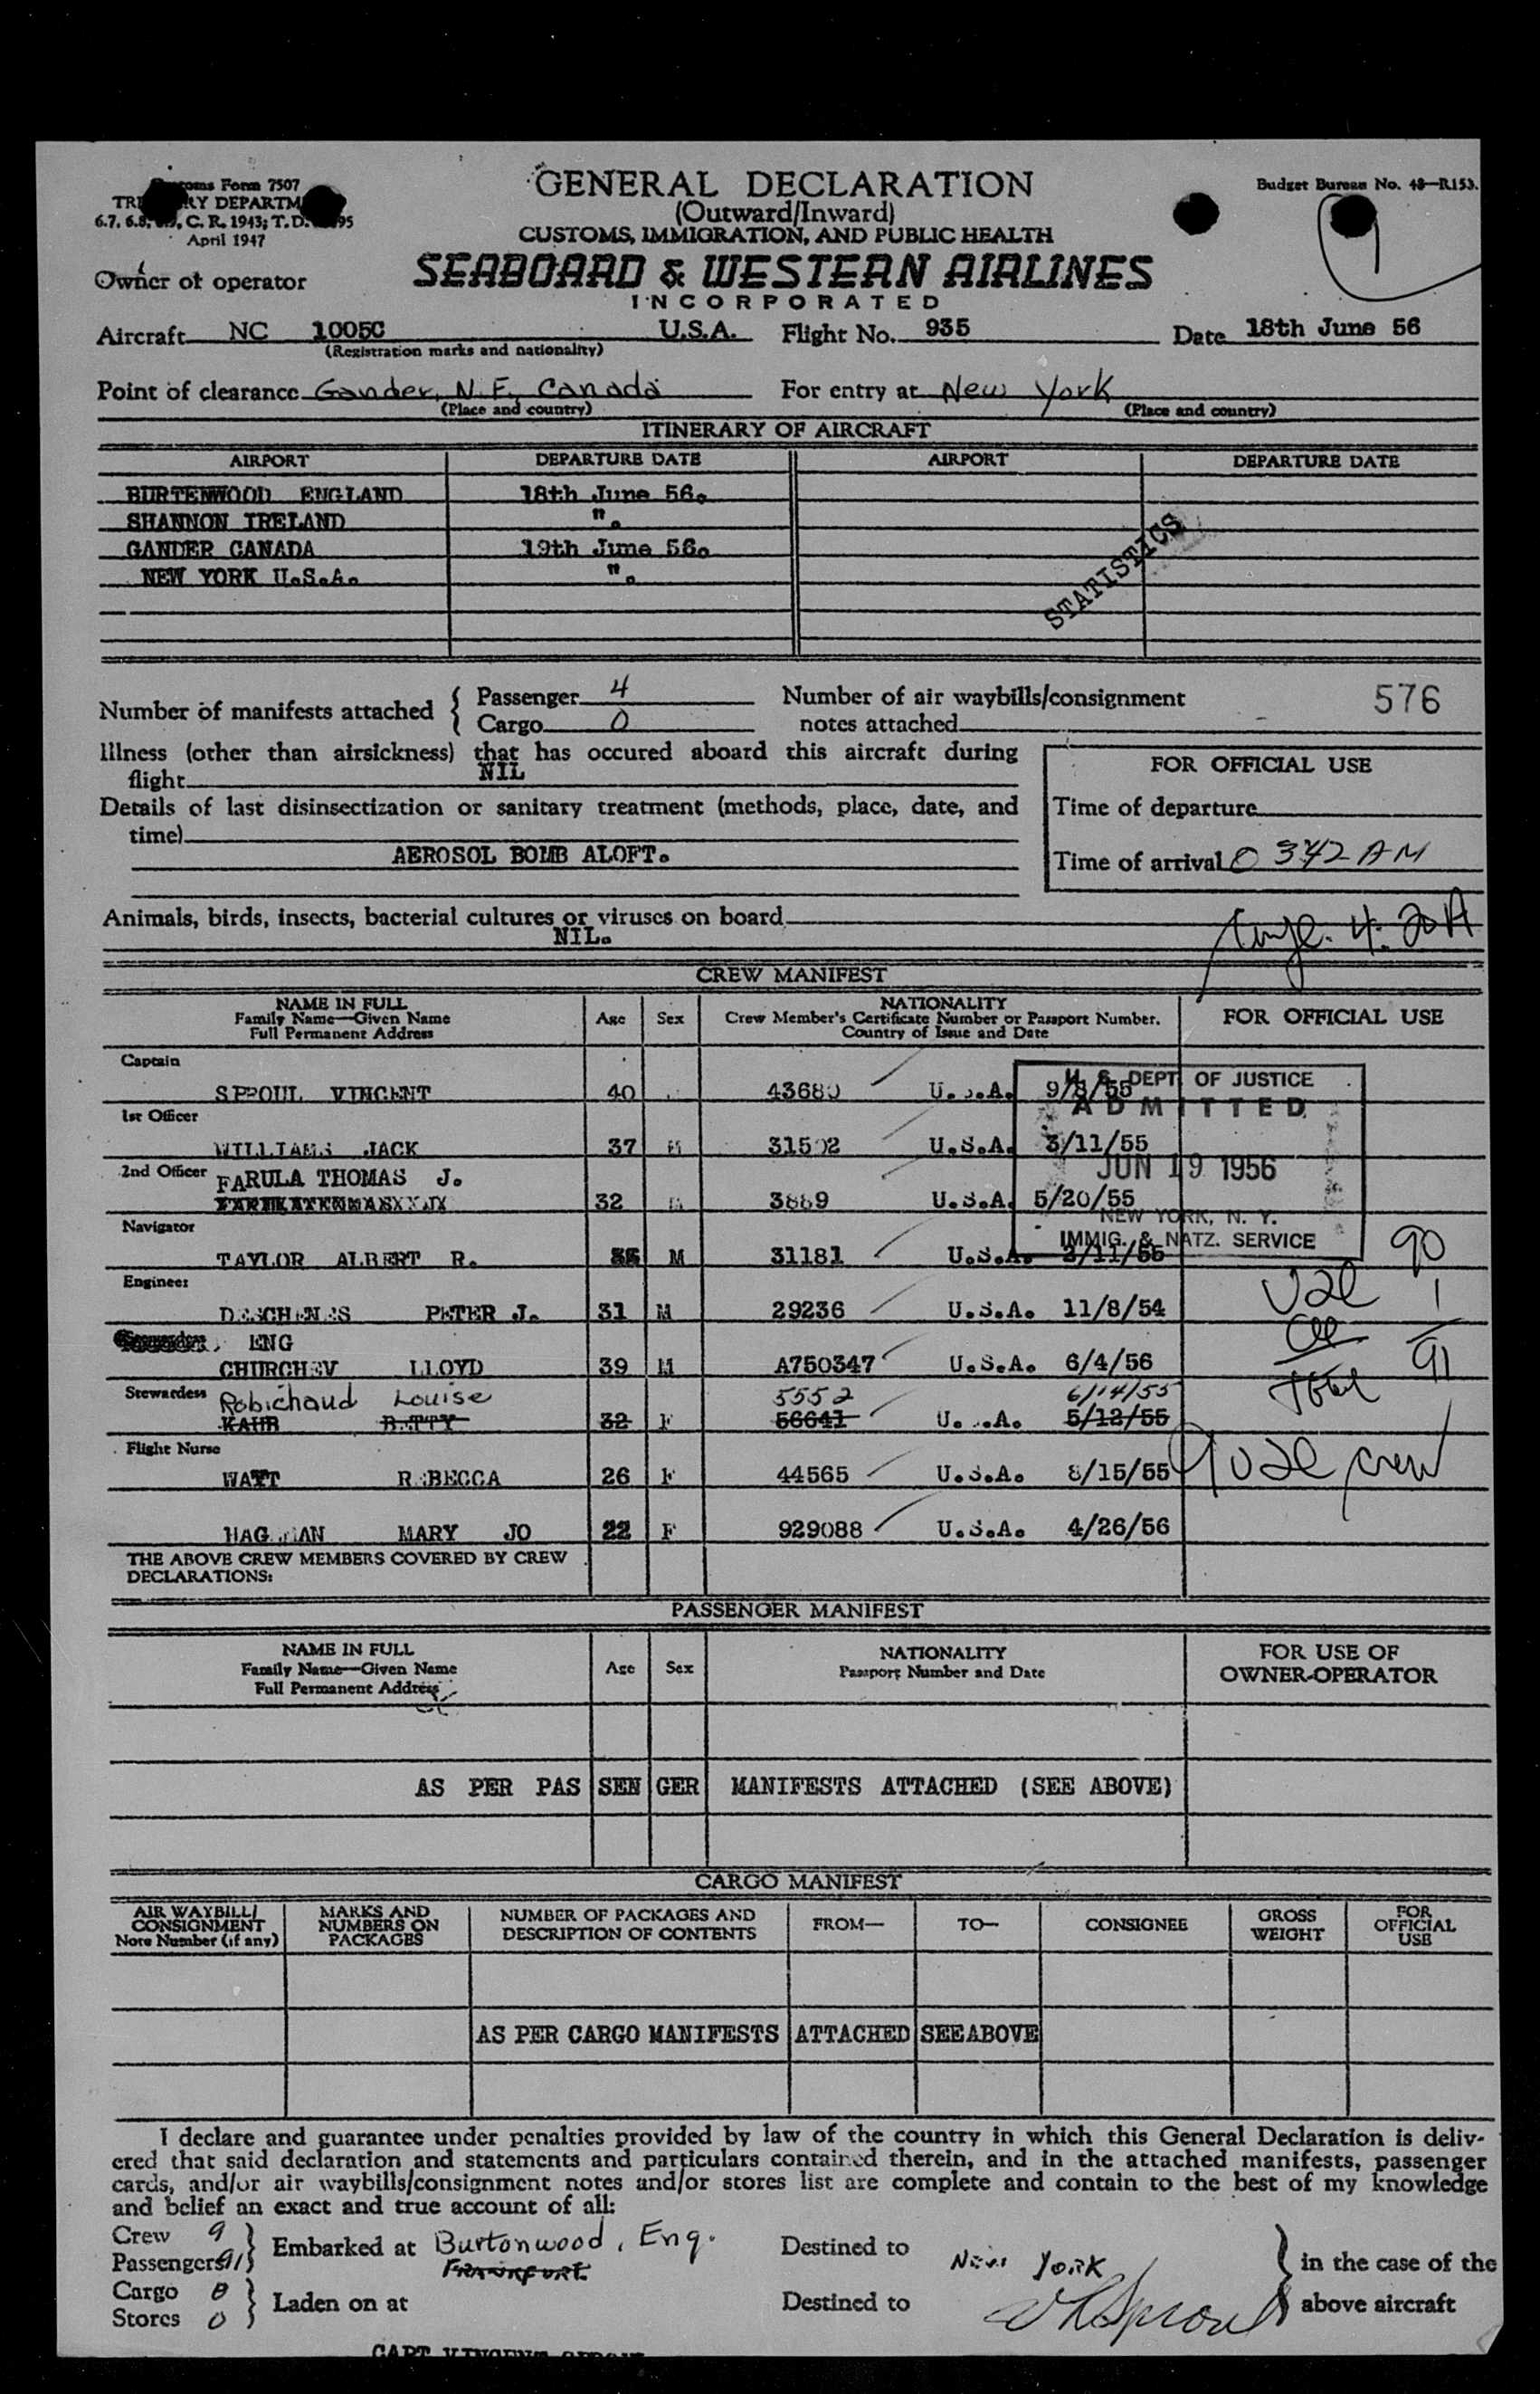 Customs Form 7507
TREASURY DEPARTMENT
C. R. 1943; T. D.
April 1947
GENERAL DECLARATION
(Outward/Inward)
CUSTOMS, IMMIGRATION, AND PUBLIC HEALTH
Budget Bureau No. 48-R153.
9
Owner or operator
SEABOARD & WESTERN AIRLINES
INCORPORATED
Aircraft NC 1005C U.S.A. Flight No. 935 Date 18th June 56
(Registration marks and nationality)
Point of clearance Gander, N.F. Canada For entry at New York
(Place and country) (Place and country)
ITINERARY OF AIRCRAFT
AIRPORT DEPARTURE DATE AIRPORT DEPARTURE DATE
BURTENWOOD ENGLAND 18th June 56.
SHANNON IRELAND ".
GANDER CANADA 19th June 56.
NEW YORK U.S.A. ".
STATISTICS
Number of manifests attached { Passenger 4
Cargo 0
Number of air waybills/consignment
notes attached -
576
Illness (other than airsickness) that has occured aboard this aircraft during
flight NIL
Details of last disinsectization or sanitary treatment (methods, place, date, and
time)
AEROSOL BOMB ALOFT.
FOR OFFICIAL USE
Time of departure
Time of arrival 0342 AM
Animals, birds, insects, bacterial cultures or viruses on board
NIL.
4:20A
CREW MANIFEST
NAME IN FULL
Family Name—Given Name
Full Permanent Address
Age Sex
NATIONALITY
Crew Member's Certificate Number or Passport Number.
Country of Issue and Date
FOR OFFICIAL USE
Captain
SPROUL VINCENT 40 43680 U.S.A. 9/8/55
1st Officer
WILLIAMS JACK 37 M 31502 U.S.A. 3/11/55
2nd Officer FARULA THOMAS J.
32 M 3889 U.S.A. 5/20/55
Navigator
TAYLOR ALBERT R. M 31181 U.S.A. 3/11/55
Engineer
DESCHENES PETER J. 31 M 29236 U.S.A. 11/8/54
ENG
CHURCHEV LLOYD 39 M A750347 U.S.A. 6/4/56
Stewardess Robichaud Louise 5552 6/14/55
KAHR BETTY 32 F 56641 U.S.A. 5/12/55
Flight Nurse
WATT REBECCA 26 F 44565 U.S.A. 8/15/55
MARY JO 22 F 929088 U.S.A. 4/26/56
U. S. DEPT. OF JUSTICE
ADMITTED
JUN 19 1956
NEW YORK, N. Y.
IMMIG. & NATZ. SERVICE
90
1
91
Total
9 crew
THE ABOVE CREW MEMBERS COVERED BY CREW
DECLARATIONS:
PASSENGER MANIFEST
NAME IN FULL
Family Name—Given Name
Full Permanent Address
Age Sex
NATIONALITY
Passport Number and Date
FOR USE OF
OWNER-OPERATOR
AS PER PAS SEN GER MANIFESTS ATTACHED (SEE ABOVE)
CARGO MANIFEST
AIR WAYBILL/
CONSIGNMENT
Note Number (if any)
MARKS AND
NUMBERS ON
PACKAGES
NUMBER OF PACKAGES AND
DESCRIPTION OF CONTENTS
FROM— TO— CONSIGNEE
GROSS
WEIGHT
FOR
OFFICIAL
USE
AS PER CARGO MANIFESTS ATTACHED SEE ABOVE
I declare and guarantee under penalties provided by law of the country in which this General Declaration is deliv-
ered that said declaration and statements and particulars contained therein, and in the attached manifests, passenger
cards, and/or air waybills/consignment notes and/or stores list are complete and contain to the best of my knowledge
and belief an exact and true account of all:
Crew 9
Passengers 91
Embarked at Burtonwood, Eng. Destined to New York
FRANKFURT.
in the case of the
above aircraft
Cargo 0
Stores 0
Laden on at Destined to
V R Sproul
CAPT VINCENT SPROUL